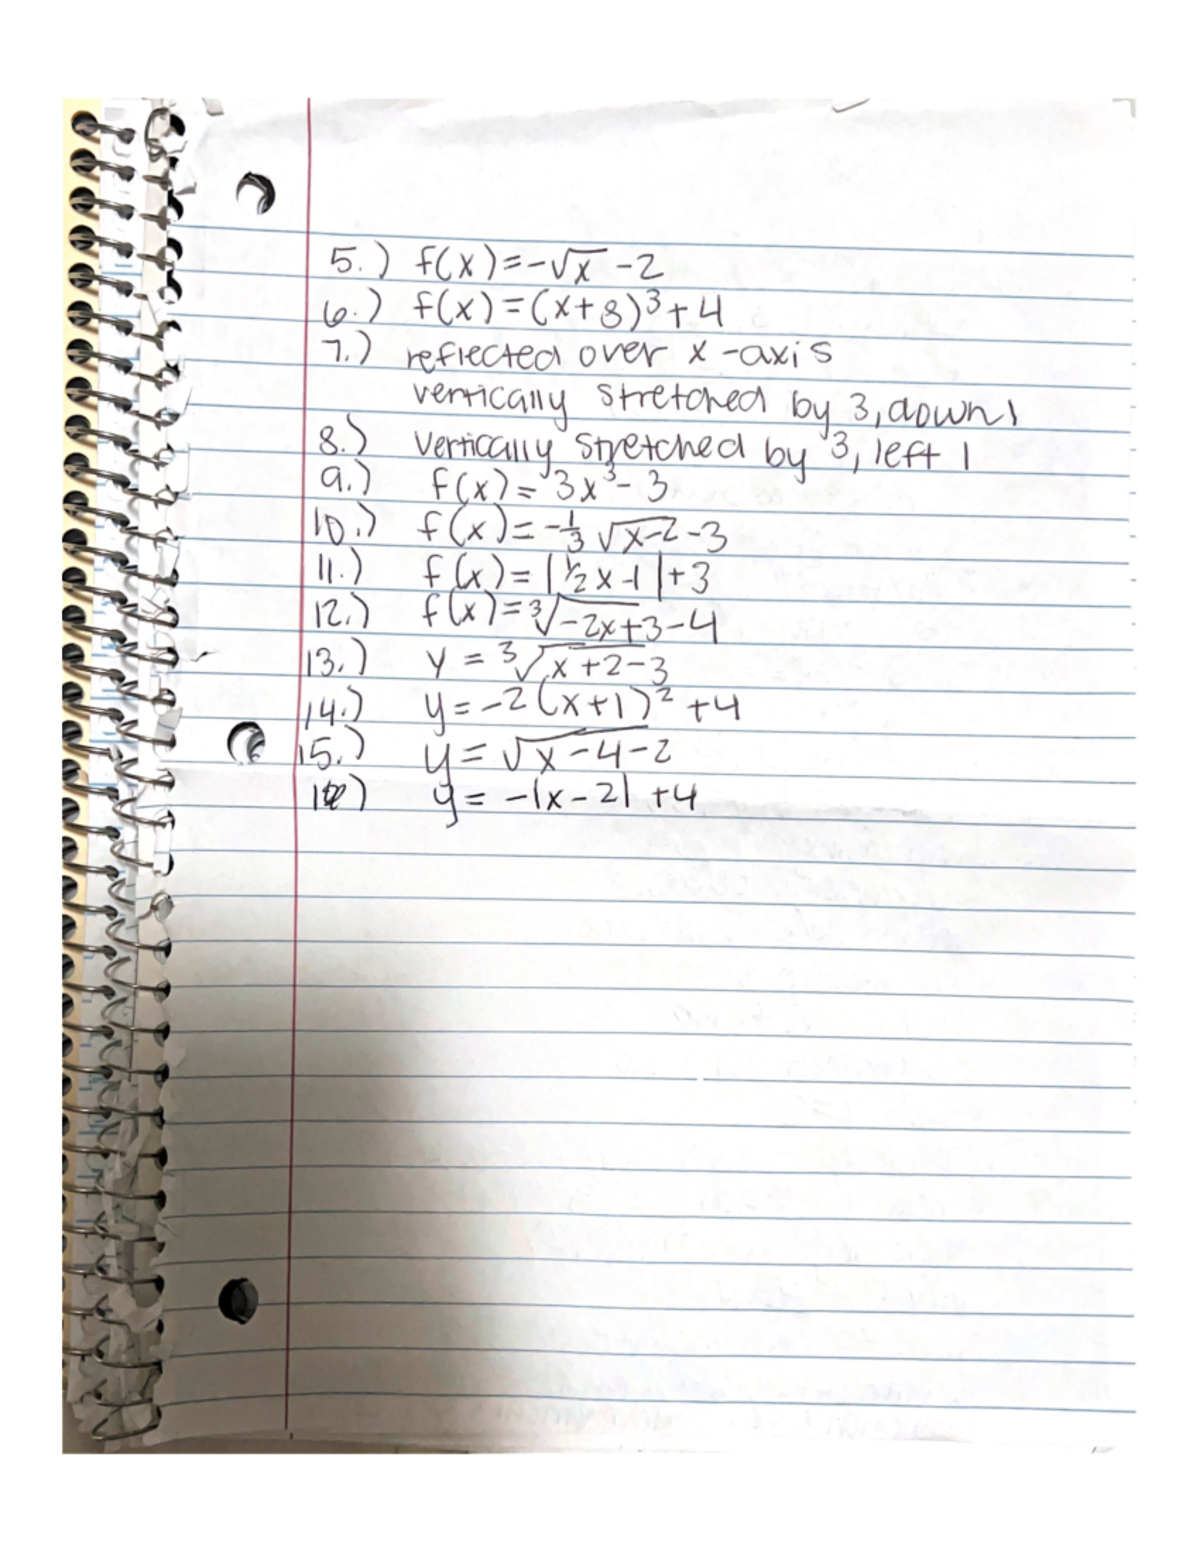 5.) f(x)=-√x -2
6.) f(x)=(x+8)³+4
7.) reflected over x-axis
vertically stretched by 3, down 1
8.) vertically stretched by 3, left 1
9.) f(x)=3x³-3
10.) f(x)=-1/3 √x-2 -3
11.) f(x)=|1/2x-1|+3
12.) f(x)=³√-2x+3-4
13.) y=³√x+2-3
14.) y=-2(x+1)²+4
15.) y=√x-4-2
16) y=-|x-2|+4